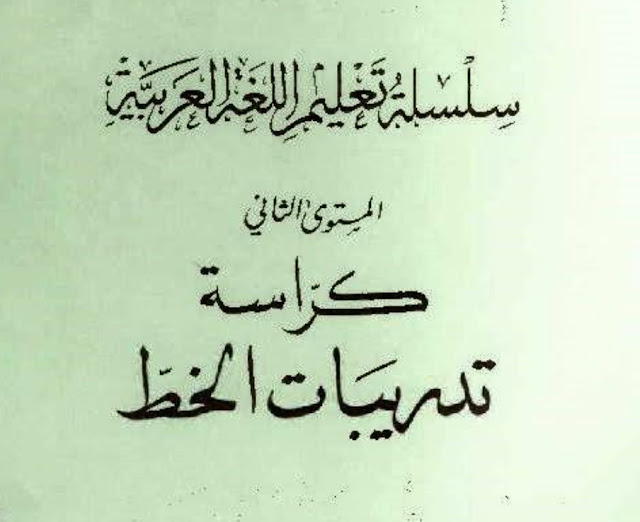 سِلْسِلَةُ تَعْلِيمِ اللُّغَةِ العَرَبِيَّةِ
المستوى الثاني
كرّاسة
تدريبَات الخطّ